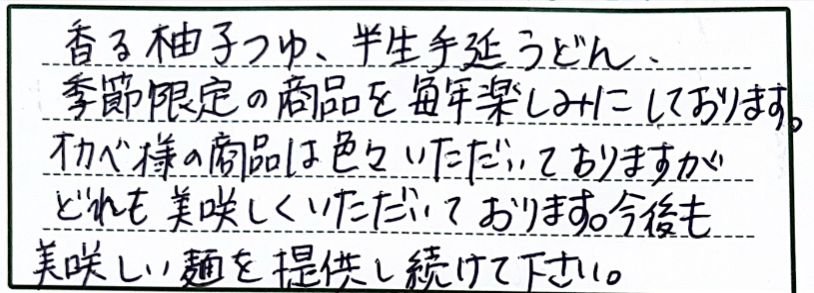 香る柚子つゆ、半生手延うどん、
季節限定の商品を毎年楽しみにしております。
オカベ様の商品は色々いただいておりますが
どれも美味しくいただいております。今後も
美味しい麺を提供し続けて下さい。